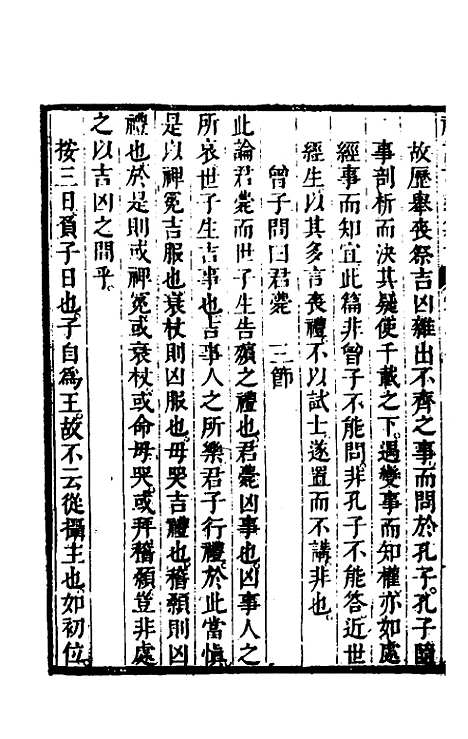 故歷舉喪祭吉凶雜出不齊之事而問於孔子孔子隨
事剖析而決其疑使千載之下遇變事而知權亦如處
經事而知宜此篇非曾子不能問非孔子不能答近世
經生以其多言喪禮不以試士遂置而不講非也
曾子問曰君薨 三節
此論君薨而世子生告殯之禮也君薨凶事也凶事人之
所哀世子生吉事也吉事人之所樂君子行禮於此當慎
是以裨冕吉服也衰杖則凶服也毋哭吉禮也稽顙則凶
禮也於是則或裨冕或衰杖或命毋哭或拜稽顙豈非處
之以吉凶之間乎
按三日負子日也子自為王故不云從攝主也如初位